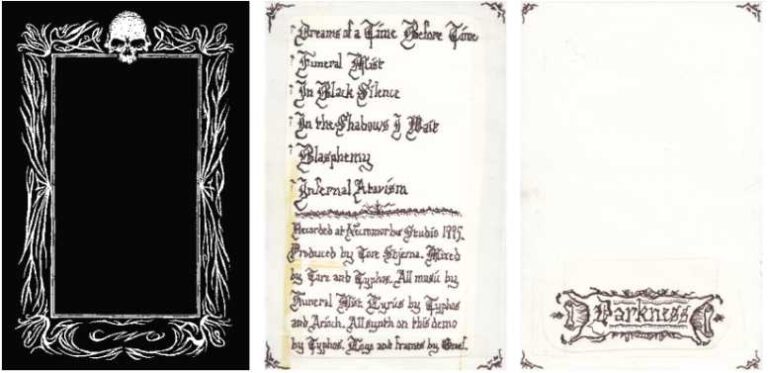 Dreams of a Time Before Time
Funeral Mist
In Black Silence
In the Shadows I Wait
Blasphemy
Infernal Atavism
Recorded at Necromorbus Studio 1995.
Produced by Tore Stjerna. Mixed
by Tore and Typhos. All music by
Funeral Mist. Lyrics by Typhos
and Arioch. All synth on this demo
by Typhos. Logo and frames by
Darkness